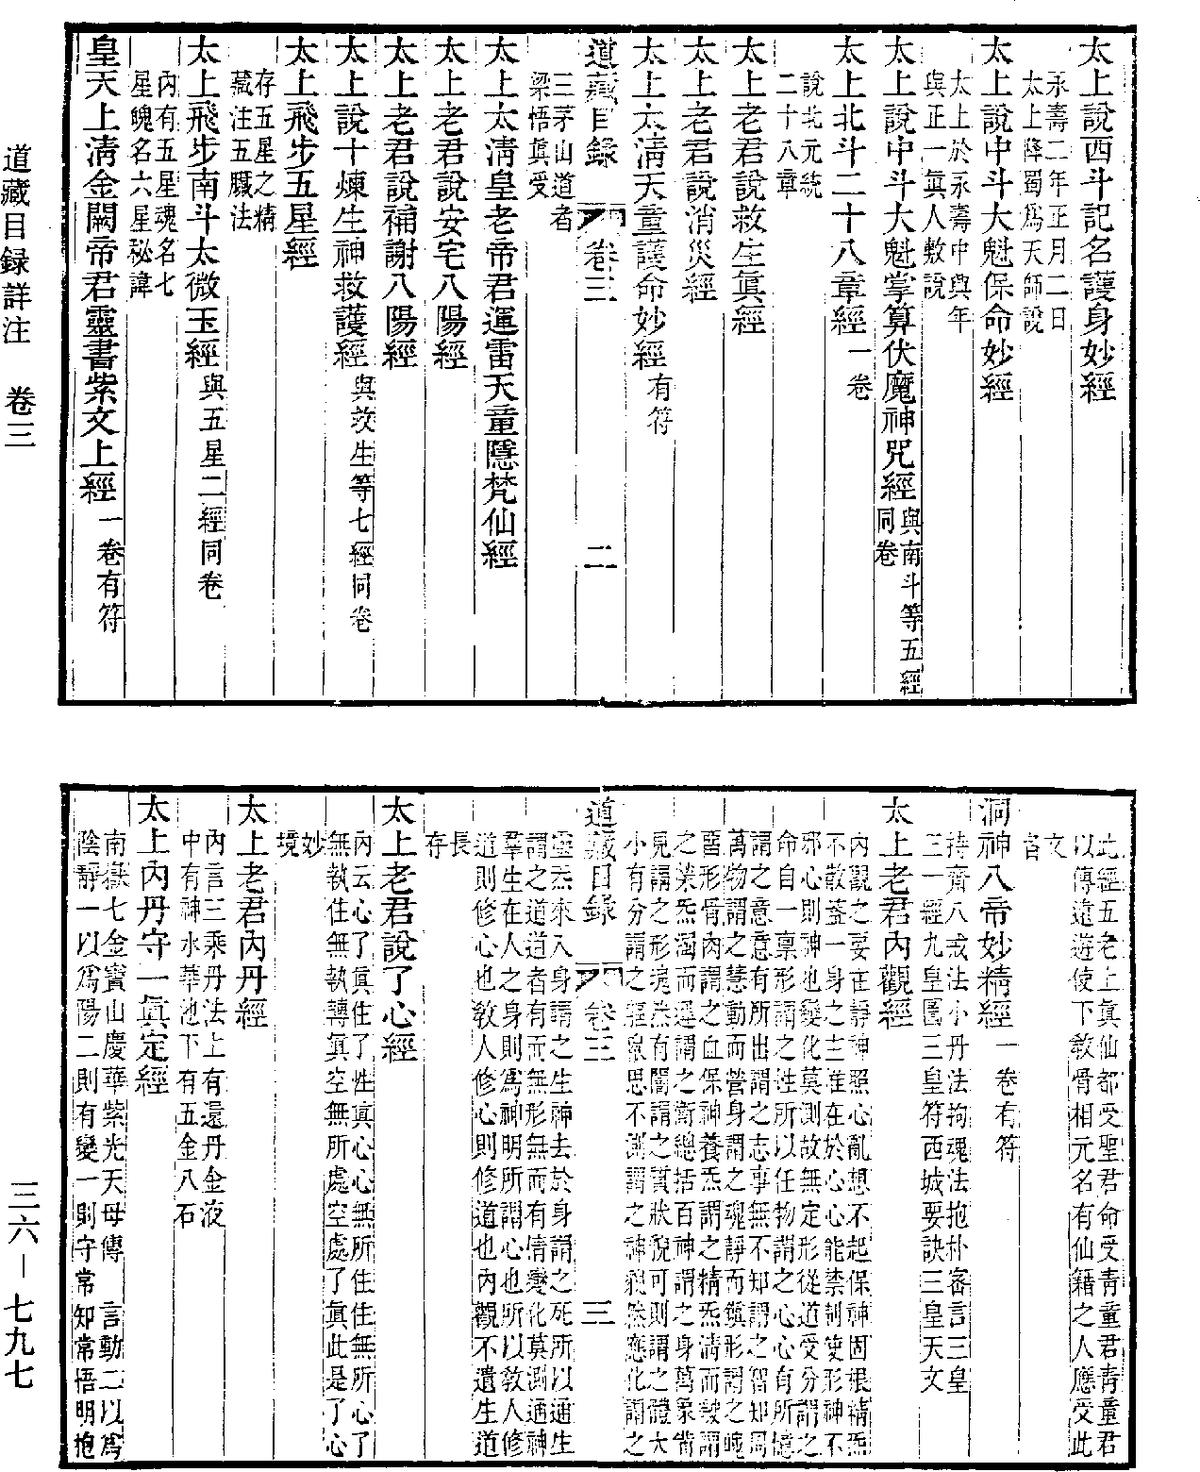 太上說西斗記名護身妙經
永壽二年正月二日
太上降蜀爲天師說
太上說中斗大魁保命妙經
太上於永壽中與年
與正一眞人敷說
太上說中斗大魁掌算伏魔神咒經
與南斗等五經
同卷
太上北斗二十八章經一卷
說北元統
二十八章
太上老君說救生眞經
太上老君說消災經
太上太淸天童護命妙經有符
道藏目錄 卷三 二
三茅山道者
梁悟眞受
太上太淸皇老帝君運雷天童隱梵仙經
太上老君說安宅八陽經
太上老君說補謝八陽經
太上說十煉生神救護經與救生等七經同卷
太上飛步五星經
存五星之精
藏注五臟法
太上飛步南斗太微玉經與五星二經同卷
內有五星魂名七
星魄名六星秘諱
皇天上淸金闕帝君靈書紫文上經一卷有符
道藏目錄詳注 卷三
此經五老上眞仙都受聖君命受靑童君靑童君
以傳遠遊使下敎骨相元名有仙籍之人應受此
文
者
洞神八帝妙精經一卷有符
持齋八戒法小丹法拘魂法抱朴審言三皇
三一經九皇圖三皇符西城要訣三皇天文
太上老君內觀經
內觀之要在靜神照心亂想不起保神固根精炁
不散蓋一身之主惟在於心心能禁制使形神不
邪心則神也變化莫測故無定形從道受分謂之
命自一稟形謂之性所以任物謂之心心有所憶
謂之意意有所出謂之志事無不知謂之智知周
萬物謂之慧動而營身謂之魂靜而鎮形謂之魄
惡形骨肉謂之血保神養炁謂之精炁淸而駛謂
之榮炁濁而遲謂之衛總括百神謂之身萬象皆
見謂之形塊然有閡謂之質狀貌可則謂之體大
小有分謂之軀衆思不測謂之神邈然應化謂之
道藏目錄 卷三 三
靈炁來入身謂之生神去於身謂之死所以通生
謂之道道者有而無形無而有情變化莫測通神
羣生在人之身則爲神明所謂心也所以敎人修
道則修心也敎人修心則修道也內觀不遺生道
長
存
太上老君說了心經
內云心了眞住了性眞心心無所住住無所心了
無執住無執轉眞空無所處空處了眞此是了心
妙
境
太上老君內丹經
內言三乘丹法上有還丹金液
中有神水華池下有五金八石
太上內丹守一眞定經
南嶽七金寶山慶華紫光天母傳 言動二以爲
陰靜一以爲陽二則有變一則守常知常悟明抱
三六－七九七